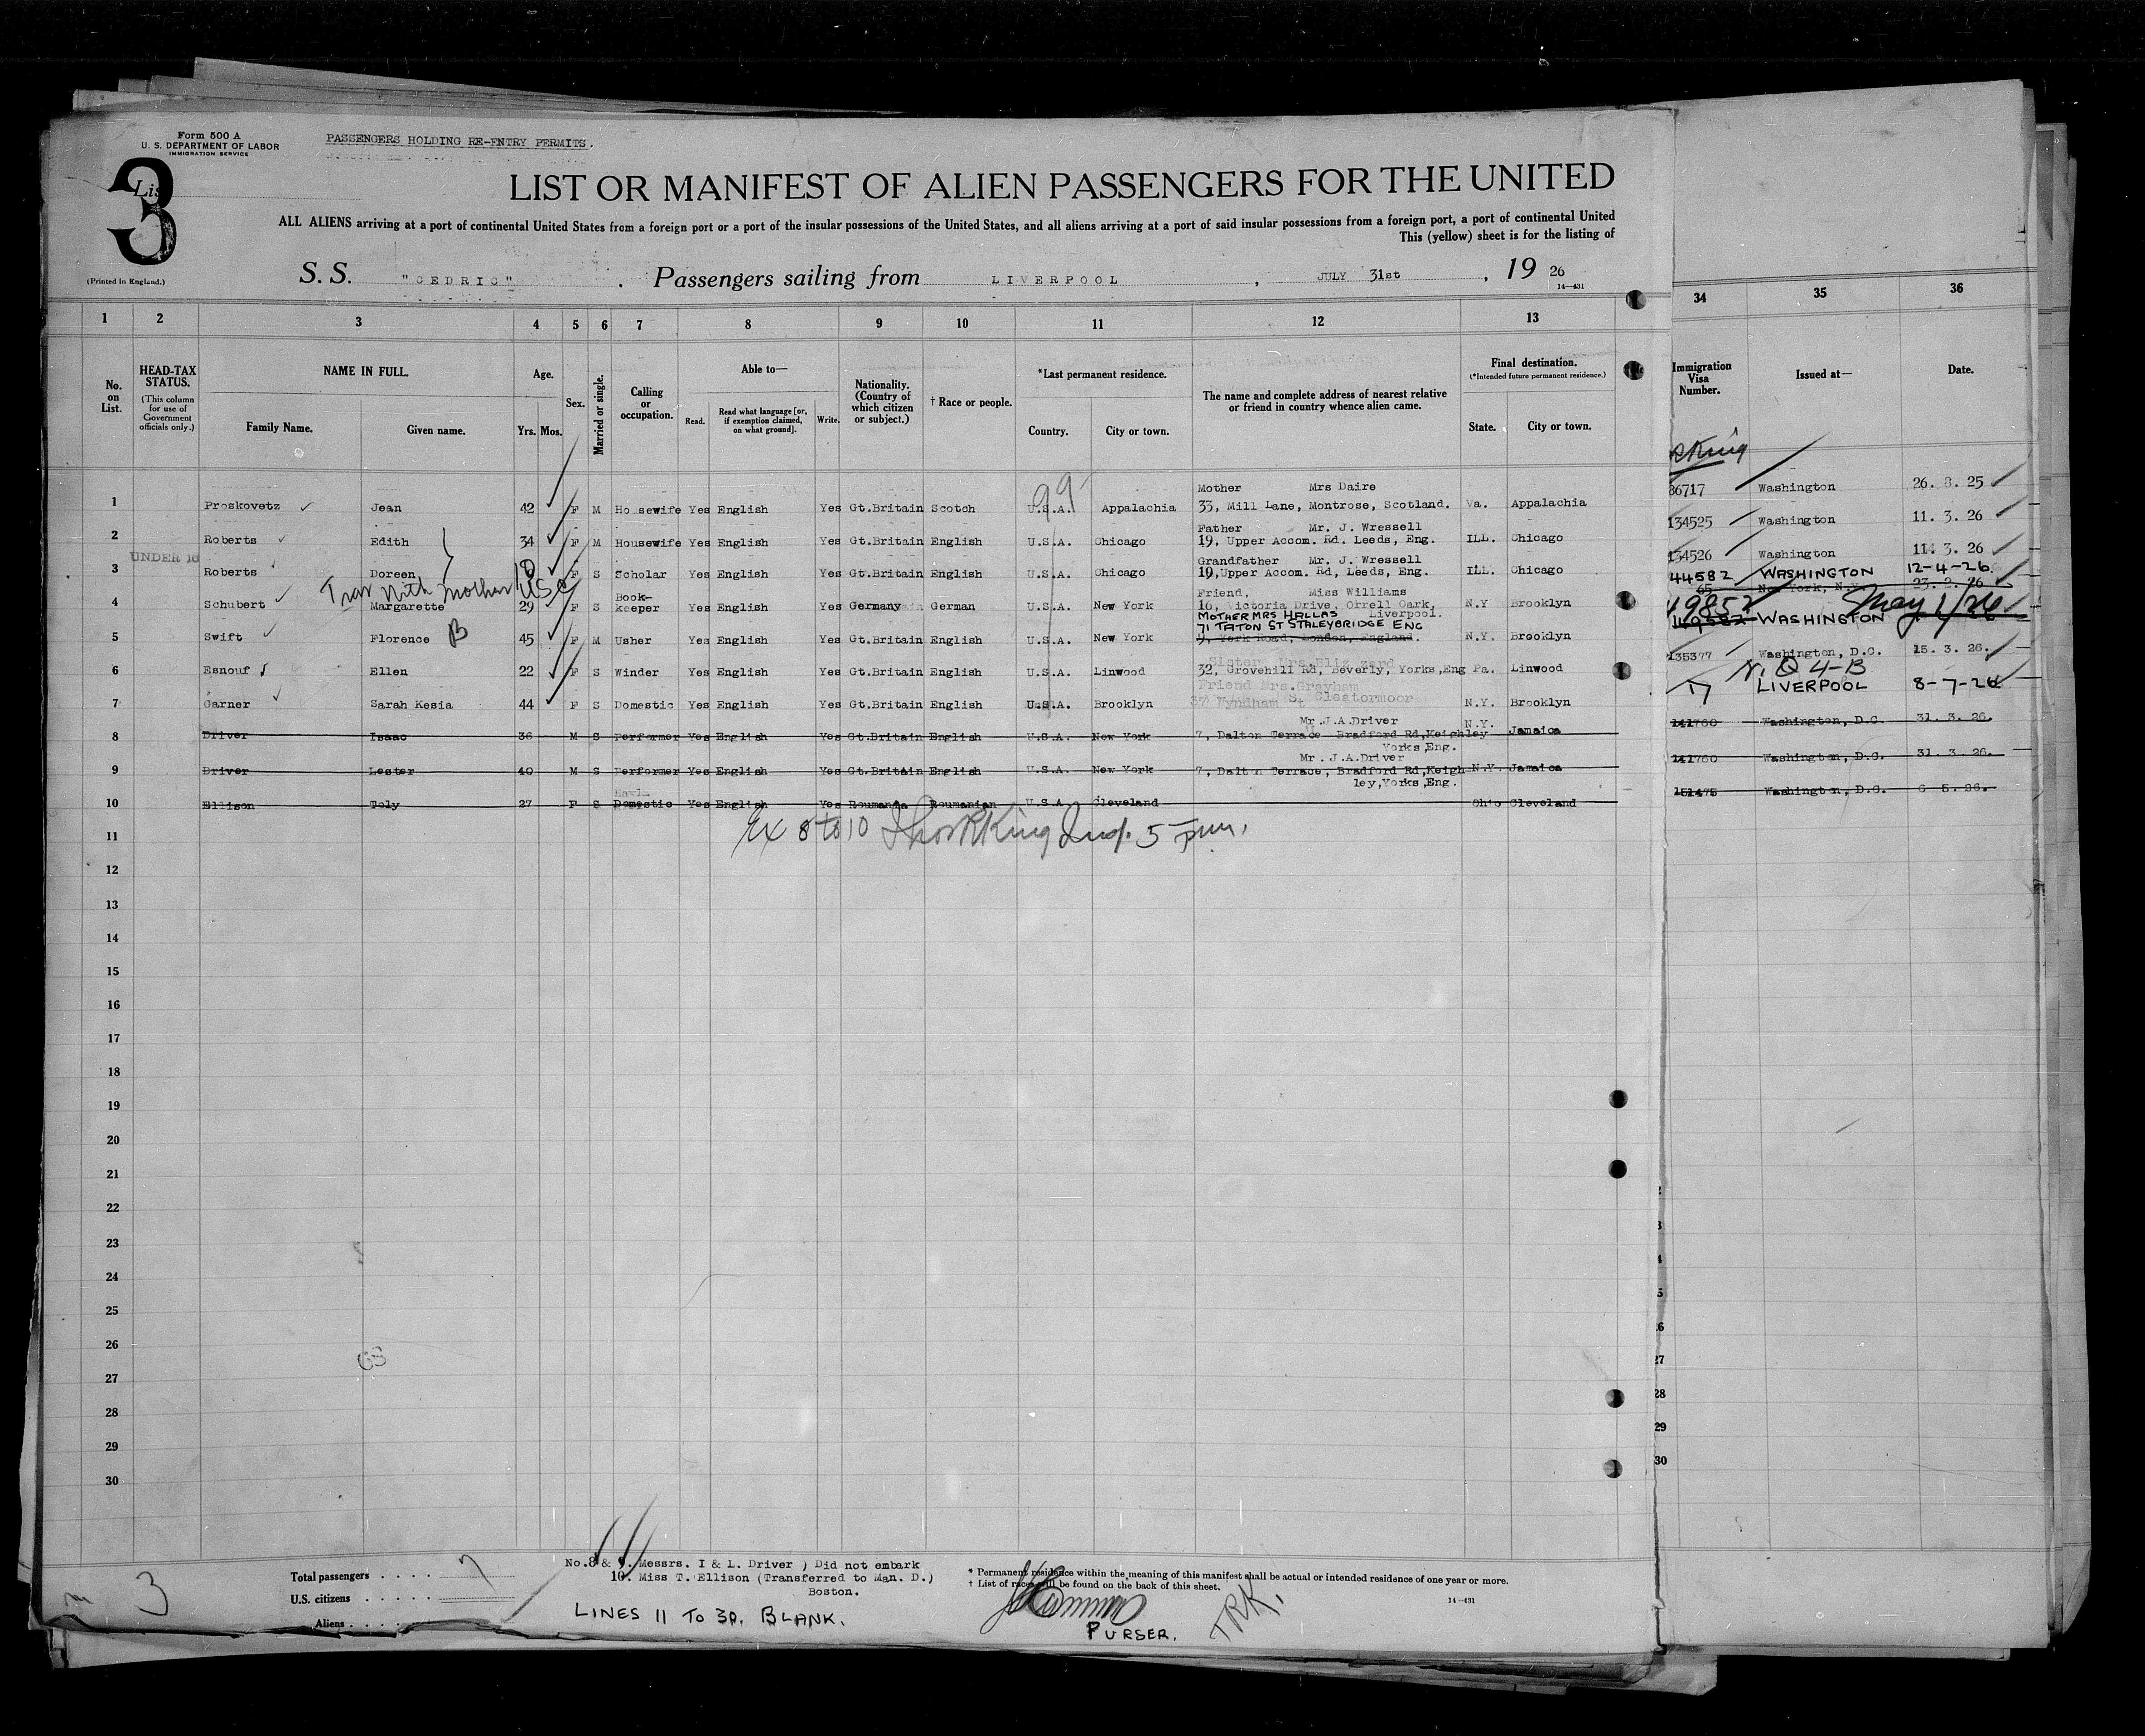 Form 500 A
U. S. DEPARTMENT OF LABOR
IMMIGRATION SERVICE
PASSENGERS HOLDING RE-ENTRY PERMITS.
3
(Printed in England.)
LIST OR MANIFEST OF ALIEN PASSENGERS FOR THE UNITED
ALL ALIENS arriving at a port of continental United States from a foreign port or a port of the insular possessions of the United States, and all aliens arriving at a port of said insular possessions from a foreign port, a port of continental United
This (yellow) sheet is for the listing of
S. S. "CEDRIC" . Passengers sailing from LIVERPOOL , JULY 31st , 19 26
14-431
1 2 3 4 5 6 7 8 9 10 11 12 13 34 35 36
No. on List.
HEAD-TAX STATUS.
(This column for use of Government officials only.)
NAME IN FULL.
Family Name. Given name.
Age.
Yrs. Mos.
Sex.
Married or single.
Calling or occupation.
Able to—
Read. Read what language [or, if exemption claimed, on what ground]. Write.
Nationality. (Country of which citizen or subject.)
† Race or people.
*Last permanent residence.
Country. City or town.
The name and complete address of nearest relative or friend in country whence alien came.
Final destination.
(*Intended future permanent residence.)
State. City or town.
Immigration Visa Number.
Issued at—
Date.
99
Mother Mrs Daire
1 Proskovetz Jean 42 F M Housewife Yes English Yes Gt.Britain Scotch U.S.A. Appalachia 33, Mill Lane, Montrose, Scotland. Va. Appalachia 86717 Washington 26. 8. 25
Father Mr. J. Wressell
2 Roberts Edith 34 F M Housewife Yes English Yes Gt.Britain English U.S.A. Chicago 19, Upper Accom. Rd. Leeds, Eng. ILL. Chicago 134525 Washington 11. 3. 26
UNDER 16
Grandfather Mr. J. Wressell
3 Roberts Doreen F S Scholar Yes English Yes Gt.Britain English U.S.A. Chicago 19, Upper Accom. Rd, Leeds, Eng. ILL. Chicago 134526 Washington 11. 3. 26
Trav with mother USC
44582 WASHINGTON 12-4-26.
Friend, Miss Williams
4 Schubert Margarette 29 F S Book-keeper Yes English Yes Germany German U.S.A. New York 16, Victoria Drive, Orrell Oark, Liverpool. N.Y Brooklyn 65 New York, N.Y. 23. 2. 26
MOTHER MRS HALLAS
71 TATON ST STALEYBRIDGE ENG
49852 WASHINGTON May 1/26
5 Swift Florence B 45 F M Usher Yes English Yes Gt.Britain English U.S.A. New York 9, York Road, London, England. N.Y. Brooklyn
6 Esnouf Ellen 22 F S Winder Yes English Yes Gt.Britain English U.S.A. Linwood 32, Grovehill Rd, Beverly, Yorks,Eng Pa. Linwood 135377 Washington, D.C. 15. 3. 26.
N.Q 4-B
Friend Mrs.Grayham
7 Garner Sarah Kesia 44 F S Domestic Yes English Yes Gt.Britain English U.S.A. Brooklyn 37 Wyndham St Cleatormoor N.Y. Brooklyn 17 LIVERPOOL 8-7-26
Mr.J.A.Driver
8 Driver Isaac 36 M S Performer Yes English Yes Gt.Britain English U.S.A. New York 7, Dalton Terrace Bradford Rd,Keighley Yorks,Eng. N.Y. Jamaica 141760 Washington, D.C. 31. 3. 26.
Mr.J.A.Driver
9 Driver Lester 40 M S Performer Yes English Yes Gt.Britain English U.S.A. New York 7, Dalton Terrace, Bradford Rd,Keighley,Yorks,Eng. N.Y. Jamaica 141760 Washington, D.C. 31. 3. 26.
10 Ellison Toly 27 F S Domestic Yes English Yes Roumania Roumanian U.S.A. Cleveland Ohio Cleveland 151475 Washington, D.C. 6 5. 26.
Ex 8 to 10 Insp. 5 pm.
11
12
13
14
15
16
17
18
19
20
21
22
23
24
25
26
27
28
29
30
63
Total passengers . . . . 7
U.S. citizens . . . . . .
Aliens . . . .
3
No.8 & 9. Messrs. I & L. Driver ) Did not embark
10. Miss T. Ellison (Transferred to Man. D.)
Boston.
LINES 11 TO 30. BLANK.
* Permanent residence within the meaning of this manifest shall be actual or intended residence of one year or more.
† List of races will be found on the back of this sheet.
14-431
PURSER.
TRK.